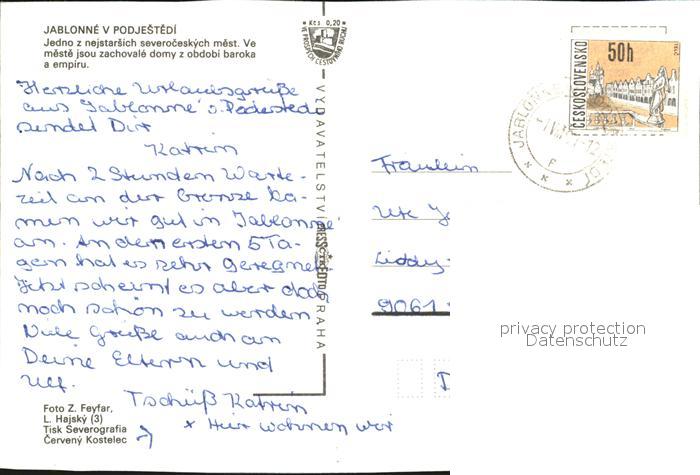 JABLONNÉ V PODJEŠTĚDÍ
Jedno z nejstarších severočeských měst. Ve
městě jsou zachovalé domy z období baroka
a empíru.
Kčs 0,20
VE PROSPĚCH CESTOVNÍHO RUCHU
Herzliche Urlaubsgrüße
aus Jablonné v. Podested
sendet Dir
Katrin
Nach 2 Stunden Warte-
zeit an der Grenze ka-
men wir gut in Jablonné
an. In den ersten 5 Ta-
gen hat es sehr geregnet.
Jetzt scheint es aber doch
noch schön zu werden
Viele Grüße auch an
Deine Eltern und
Ulf.
Tschüß Katrin
x Hier wohnen wir
Foto Z. Feyfar,
L. Hajský (3)
Tisk Severografia
Červený Kostelec
VYDAVATELSTVÍ PRESSFOTO PRAHA
ČESKOSLOVENSKO
50h
JABLONNÉ
Fräulein
Ute
Liddy-
9061
privacy protection
Datenschutz